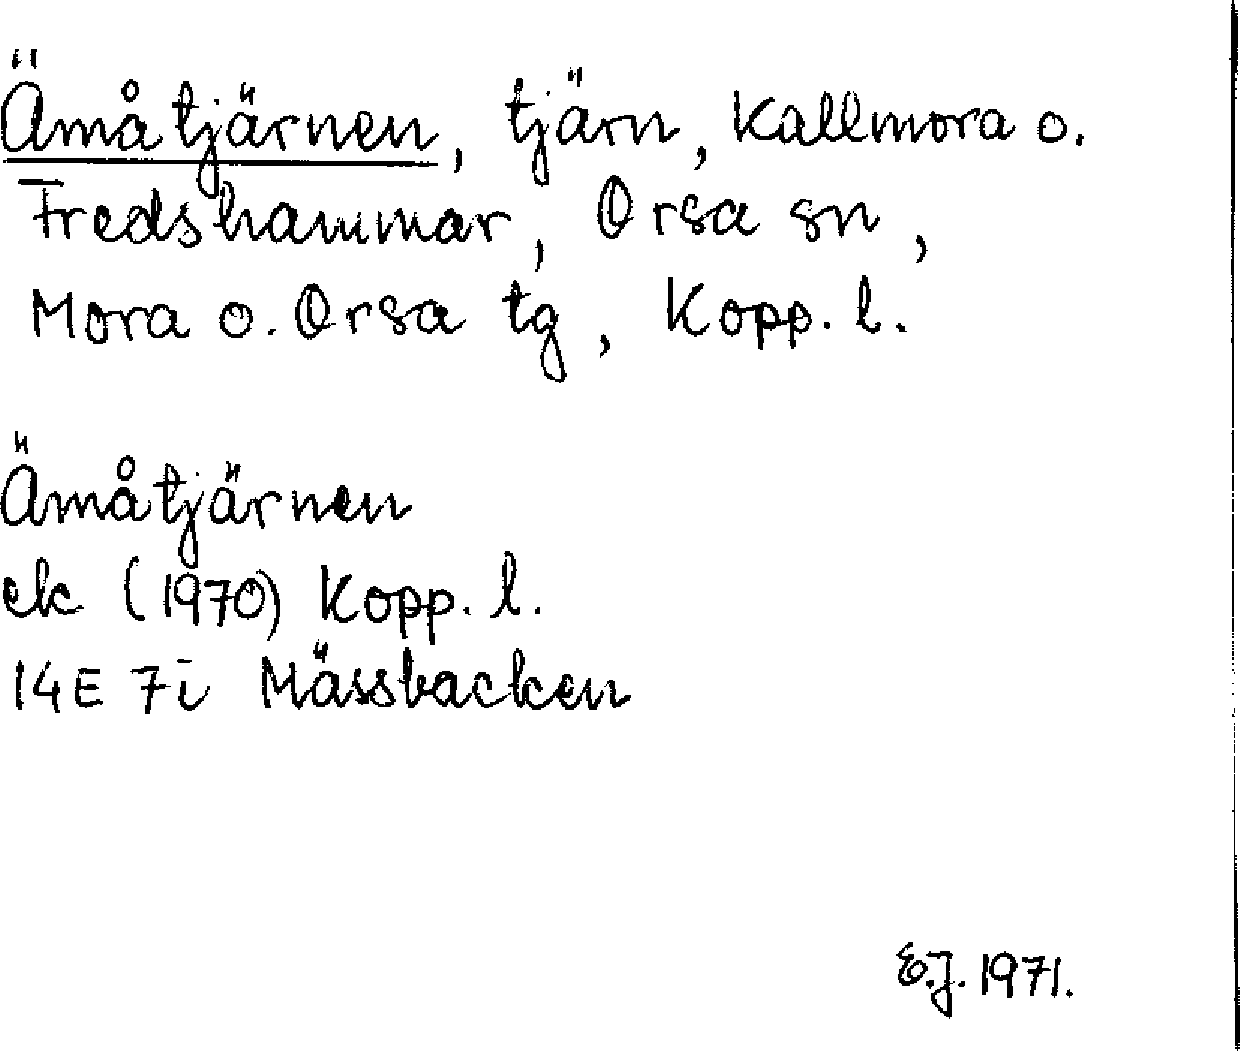 Ämåtjärnen, tjärn, Kallmora o.
Fredshammar, Orsa sn,
Mora o. Orsa tg, Kopp. l.
Ämåtjärnen
ek (1970) Kopp. l.
14E 7i Mässbacken
E.J. 1971.